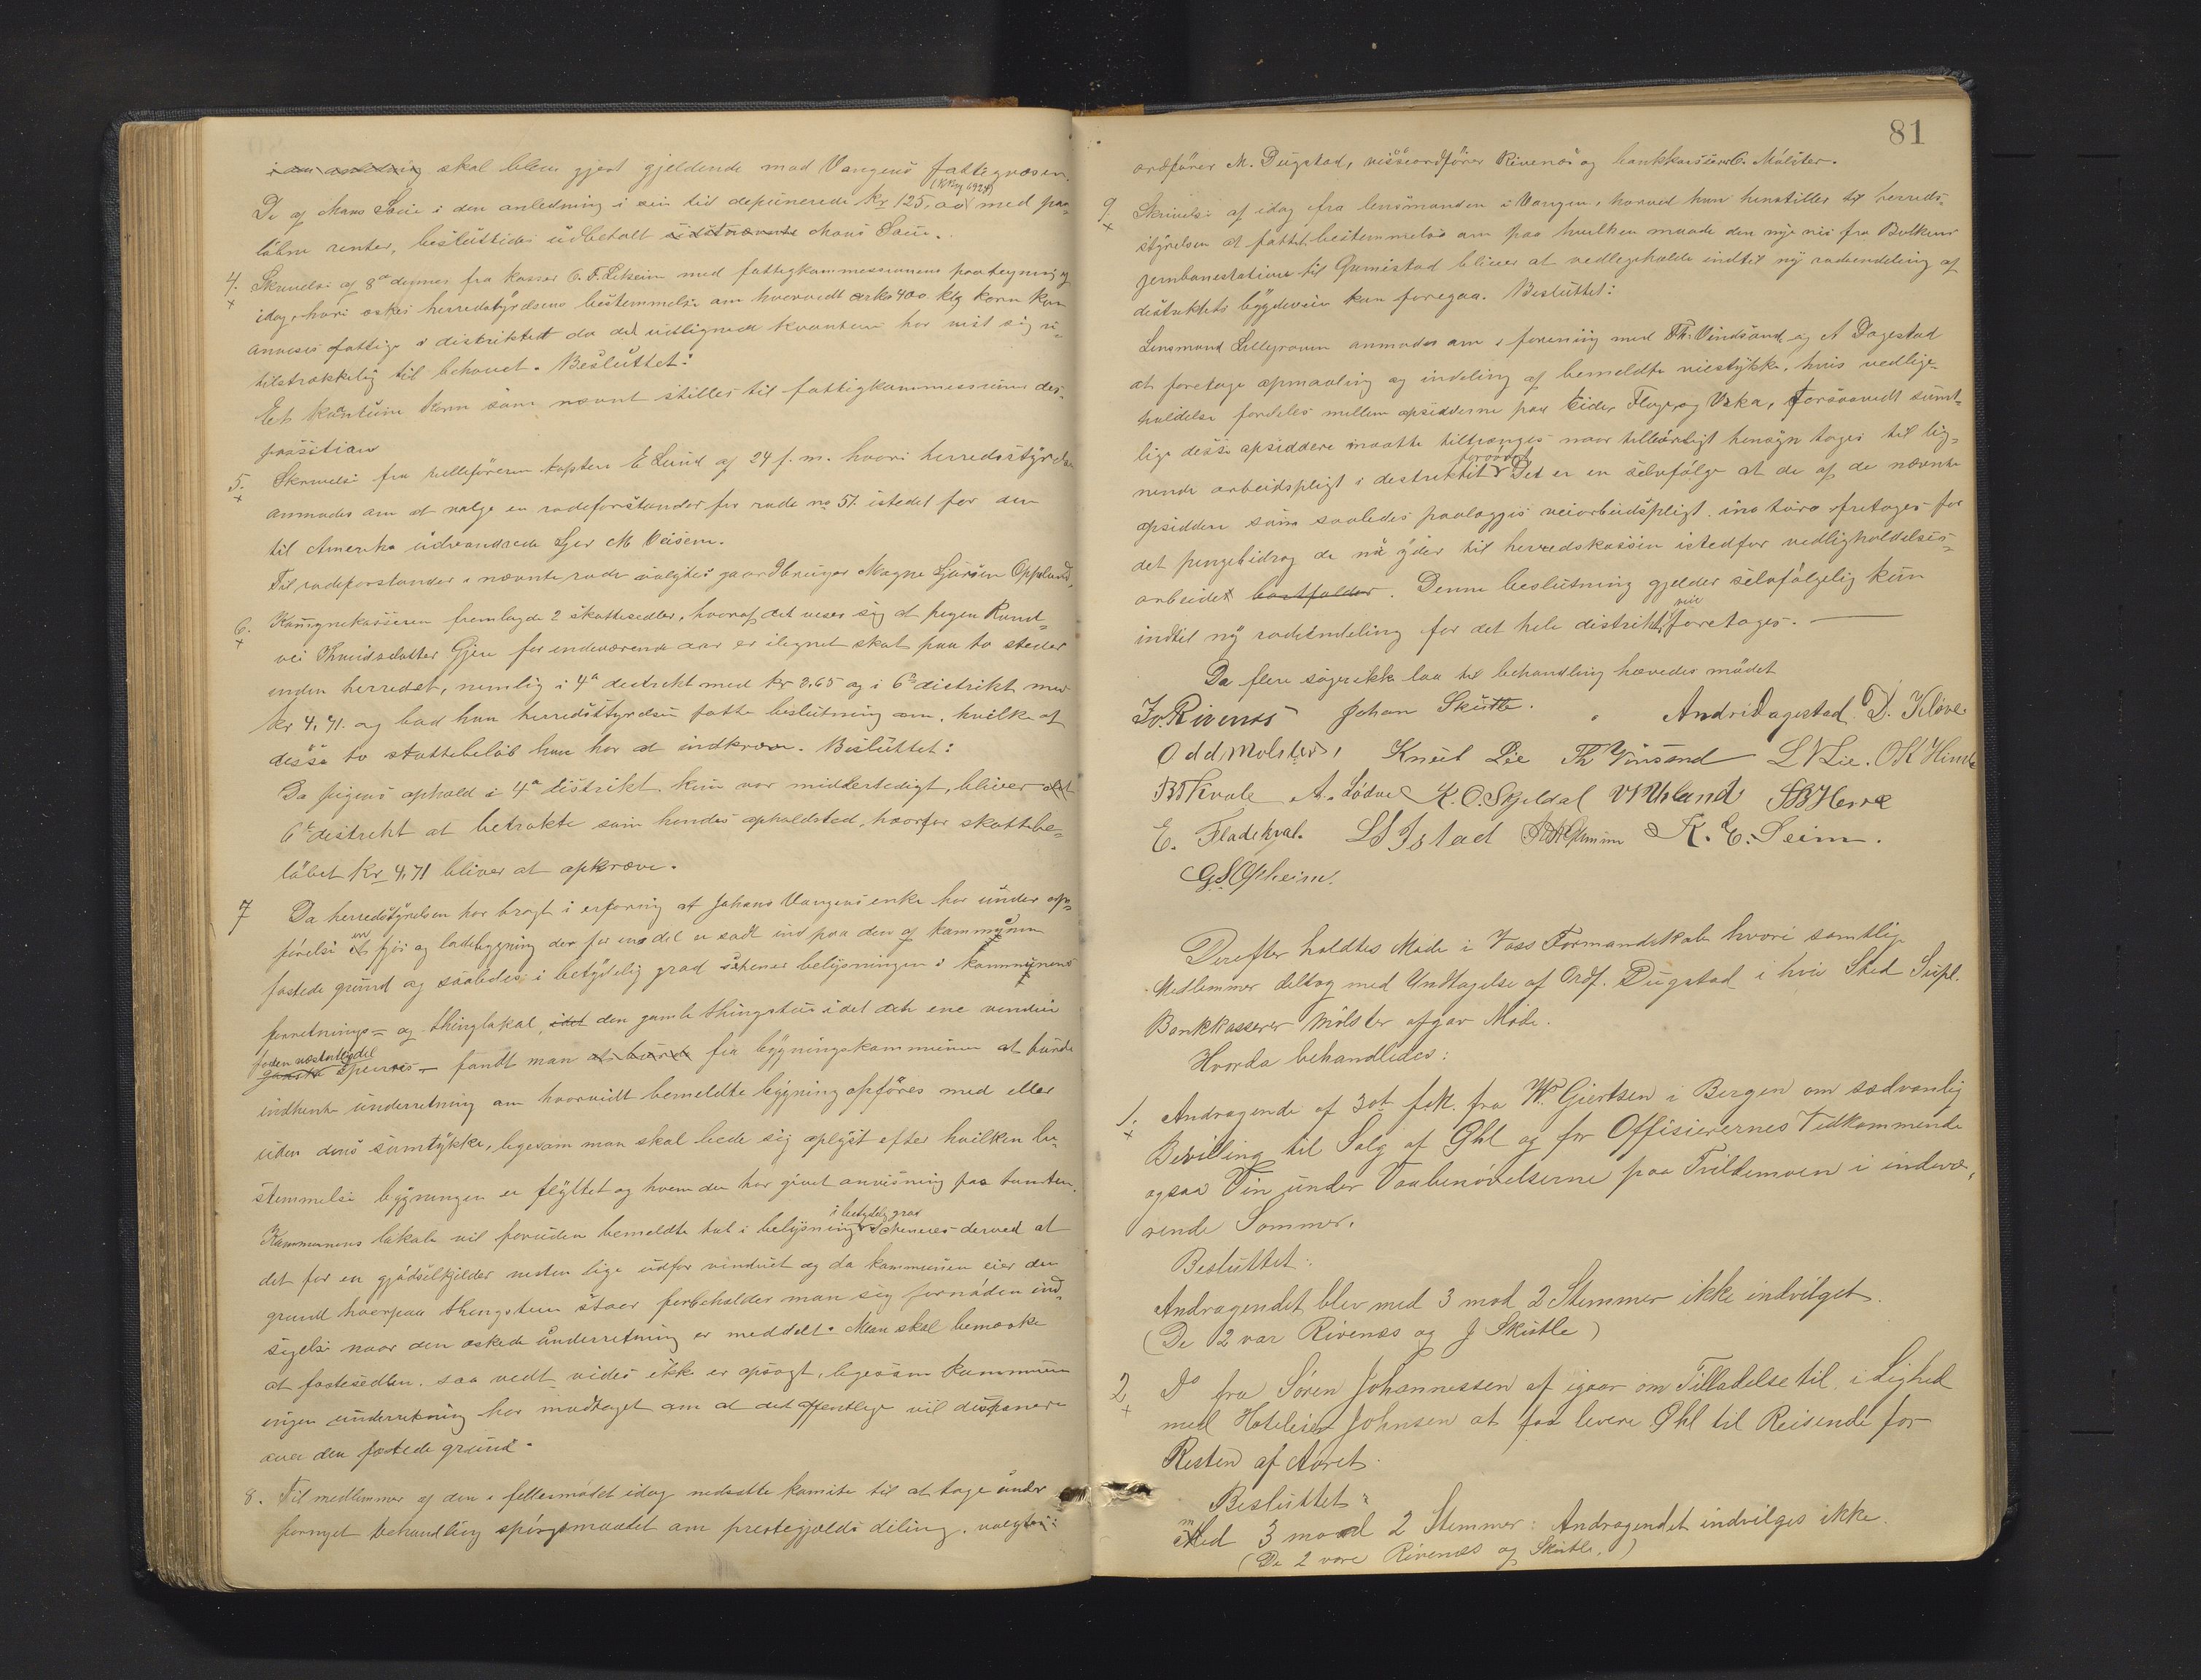 skal blive gjort gjeldende mod Vangens fattigvæsen.
De af Mons Saue i den anledning i sin tid deponerede kr 125,00 med paa-
løbne renter, besluttedes udbetalt Mons Saue.
4. Skrivelse af 8de dennes fra kasser O. T. Lekseim med fattigkommissionens paategning
idag, hvori øskes herredstyrelsens bestemmelse om hvorvidt cirka 400 klg korn kan
anvises fattige i distriktet da det udlignede kvantum har vist sig u-
tilstrækkelig til behovet. Besluttet:
Et kvantum korn som nævnt stilles til fattigkommissionens dis-
position
5. Skrivelse fra rulleføreren kaptein E Lund af 24 f. m. hvori herredsstyrelsen
anmodes om at vælge en rodeforstander for rode no 51. istedet for den
til Amerika udvandrede Sjur M Væisene.
Til rodeforstander i nævnte rode valgtes gaardbruger Magne Sjursen Opeland.
6. Kommunekasseren fremlagde 2 skattesedler, hvoraf det viser sig at pigen Rand-
vei Knudsdatter Gjere for indeværende aar er ilignet skat paa to steder
inden herredet, nemlig i 4de distrikt med kr 2.65 og i 6te distrikt med
kr 4,71. og bad han herredsstyrelsen fatte beslutning om, hvilke af
disse to skattebeløb han har at indkræve. Besluttet:
Da pigens ophold i 4de distrikt kun var middertidigt, bliver
6te distrikt at betrakte som hendes opholdsted, hvorfor skattebe-
løbet kr 4,71 bliver at opkræve.
7 Da herredstyrelsen har bragt i erfaring at Johans Vangens enke har under op-
førelse en fjøs og ladebygning der for en del er sadt ind paa den af kommunen
festede grund og saaledes i betydelig grad sjenerer belysningen i kommunens
forretnings- og thinglokal, den gamle thingstue idet det ene vindu
for den væsentligste del sperres - fandt man fra bygningskommunen at burde
indhente underretning om hvorvidt bemeldte bygning opføres med eller
uden dens samtykke, ligesom man skal bede sig oplyst efter hvilken be-
stemmelse bygningen er flyttet og hvem der har givet anvisning paa tomten.
Kommunens lokale vil foruden bemeldte tab i belysning i betydelig grad sjeneres derved at
det faar en gjødselkjelder nesten lige udfor vinduet og da kommunen eier den
grund hvorpaa thingstuen staar forbeholder man sig fornøden ind-
sigelse naar den øskede underretning er meddelt. Man skal bemærke
at festesedlen, saa vidt vides ikke er opsagt, ligesom kommunen
ingen underretning har modtaget om at det offentlige vil disponere
over den festede grund.
8. Til medlemmer af den i fellesmødet idag nedsatte komite til at tage under
fornyet behandling spørgsmaalet om prestegjeldets deling, valgtes:
81
ordfører M. Dugstad, visseordfører Rivenæs og bankkasserer O. Mølster.
9. Skrivelse af idag fra lensmanden i Vangen, hvorved han henstiller til herreds-
styrelsen at fatte bestemmelse om paa hvilken maade den nye vei fra Bulkens
jernbanestation til Grimestad bliver at vedlegeholde indtil ny rodeinddeling af
distriktets bygdeveie kan foregaa. Besluttet:
Lensmand Lillegraven anmodes om i forening med Th. Vinsand og A Dagestad
at foretage opmaaling og indeling af bemeldte veistykke, hvis vedlige-
holdelse fordeles mellem opsidderne paa Eide, Flage, og Væka, forsaavidt samt-
lige disse opsiddere maatte tiltrænges naar tilbørligt hensyn tages til lig-
nende arbeidspligt i destriktet forøvrigt. Det er en selvfølge at de af de nævnte
opsiddere som saaledes paalægges veiarbeidspligt in natura fretages for
det pengebidrag de nu yder til herredskassen istedfor vedligholdelses-
arbeidet. Denne beslutning gjelder selvfølgelig kun
indtil ny rodeindeling for det hele distrikts veie foretages.
Da flere sager ikke laa til behandling hævedes mødet
Iv. Rivenæs Johan Skutle. Andri Dagestad. D. Kløve.
Odd Mølster, Knut Lie Th Vinsand L N Lie. O K Hirth
B T Kvale A. Lødve K. O. Skjeldal V Uhland S B Herre
E. Fladekval. L S Istad K. E. Seim.
G. S Opheim.
Derefter holdtes Møde i Voss Formandskab hvori samtlige
Medlemmer deltog med Undtagelse af Ordf. Dugstad i hvis Sted Supl.
Bankkasserer Mølster afgav Møde.
Hvorda behandledes:
1. Andragende af 30t f. M. fra W. Giertsen i Bergen om sædvanlig
Bevilling til Salg af Øhl og for Offisierernes Vedkommende
ogsaa Vin under Vaabenøvelserne paa Tvildemoen i indevæ-
rende Sommer.
Besluttet:
Andragendet blev med 3 mod 2 Stemmer ikke indvilget.
(De 2 var Rivenæs og J Skutle)
2. Do fra Søren Johannessen af igaar om Tilladelse til, i Lighed
med Hoteleier Johnsen at faa levere Øhl til Reisende for
Resten af Aaret.
Besluttet:
Med 3 mod 2 Stemmer: Andragendet indvilges ikke.
(De 2 vare Rivenæs og Skutle.)